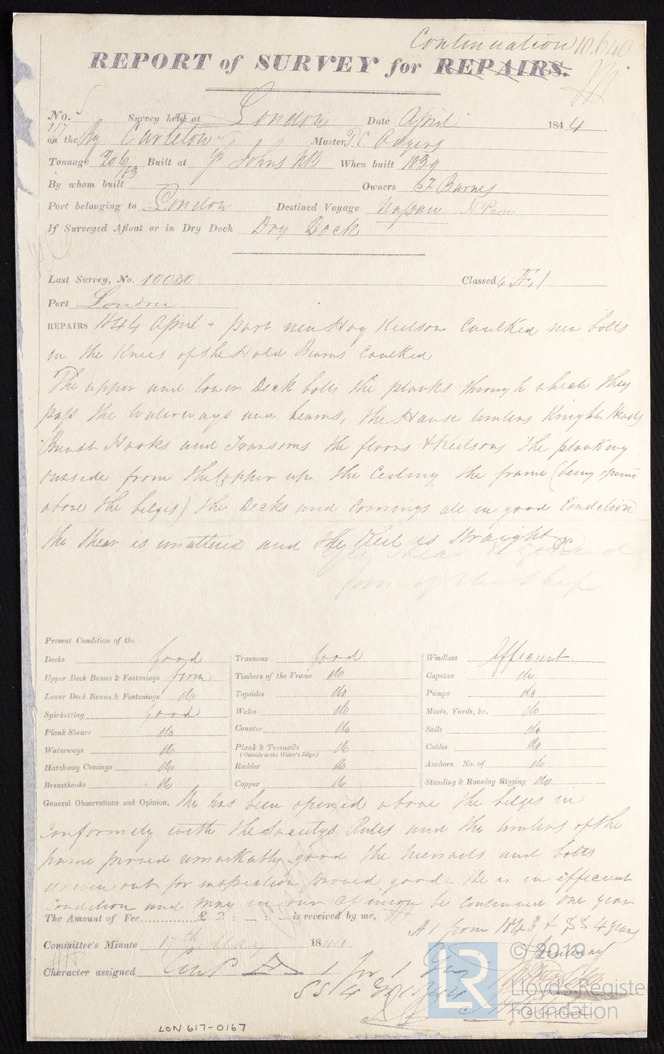 Continuation 10.640
REPORT of SURVEY for REPAIRS.
No. 117 Survey held at London Date April 1844
on the Bg Carleton Master
Tonnage 206 83 Built at St Johns NB When built 1839
By whom built Owners Barnes
Port belonging to London Destined Voyage Nassau
If Surveyed Afloat or in Dry Dock Dry Dock
Last Survey, No. 10030 Classed 6 Æ 1
Port London
REPAIRS 1844 April - Part new Keelson Caulked new bolts
in the Knees of the Hold Beams Caulked
The upper and lower Deck bolts the planks through which they
pass the Waterways and beams, the Hawse timbers Knight Heads
Breast Hooks and Transoms the floors & Keelsons the planking
outside from the Copper up the Ceiling the frame (being opened
above the bilges) the Decks and Comings all in good Condition
the Shear is unaltered and the Keel is Straight
Present Condition of the
Decks Good
Upper Deck Beams & Fastenings firm
Lower Deck Beams & Fastenings do
Spirketting Good
Plank Shears do
Waterways do
Hatchway Comings do
Breasthooks do
Transoms Good
Timbers of the Frame do
Topsides do
Wales do
Counter do
Plank & Treenails (Outside to the Water's Edge) do
Rudder do
Copper do
Windlass Efficient
Capstan do
Pumps do
Masts, Yards, &c. do
Sails do
Cables do
Anchors No. of do
Standing & Running Rigging do
General Observations and Opinion, She has been opened above the bilges in
Conformity with the Society's Rules and the timbers of the
frame proved remarkably good the treenails and bolts
driven out for inspection proved good she is in efficient
Condition and may in our Opinion be continued one year
The Amount of Fee £ 2 : - : - is received by me,
A 1 from 1843 & SS 4 years
Committee's Minute 17th May 1844
Character assigned
LON 617-0167
LR
© 2019
Lloyd's Register
Foundation